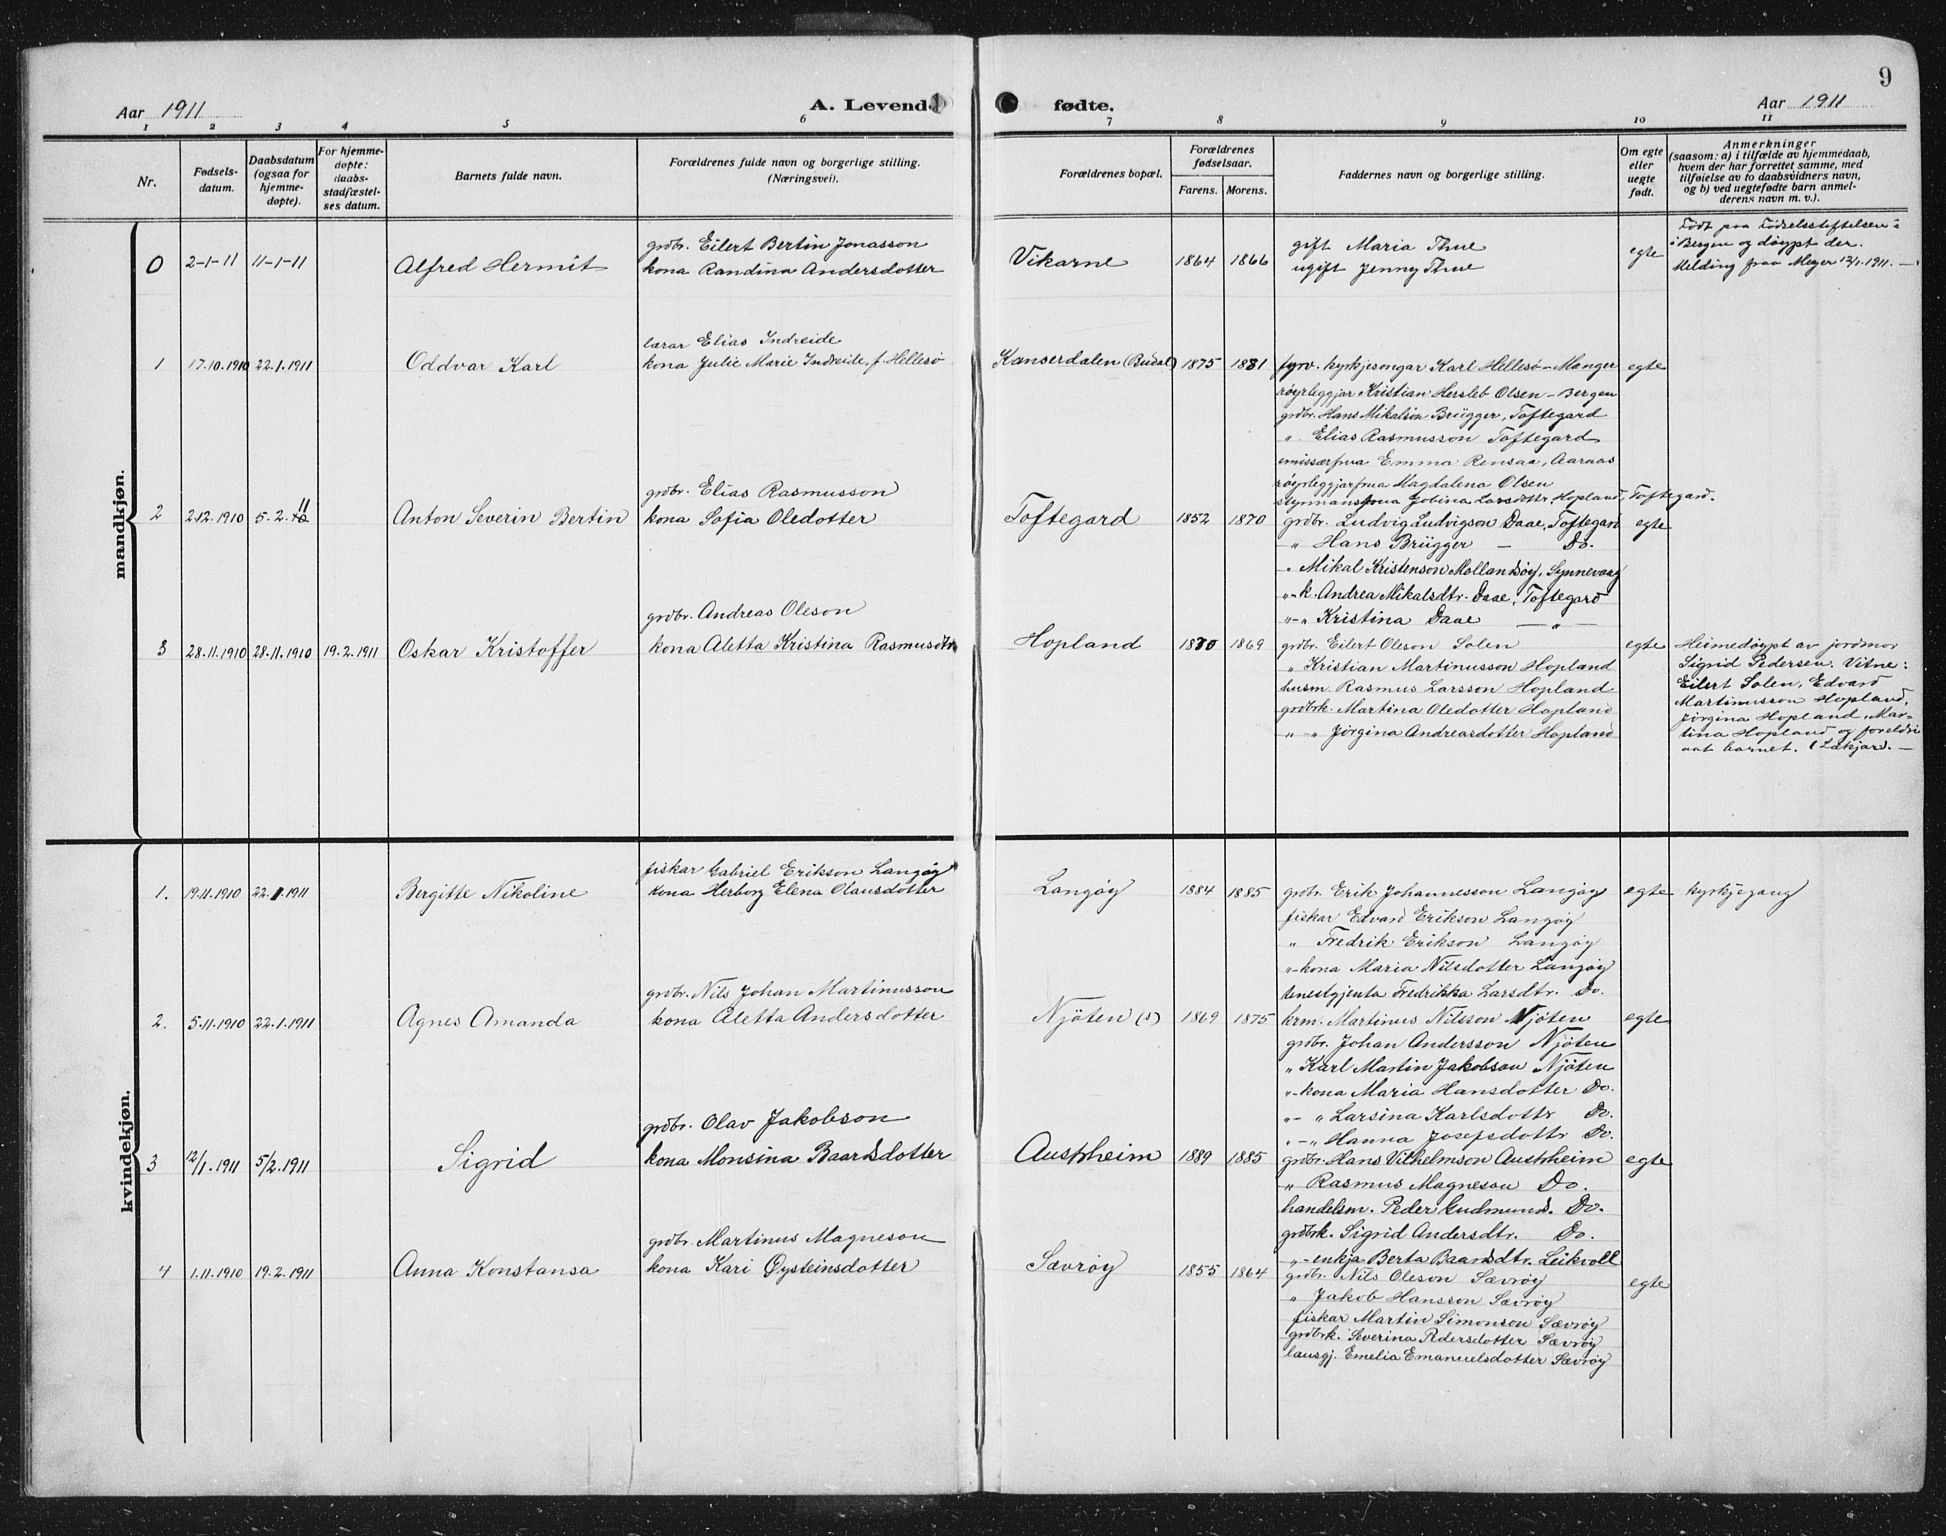 9
Aar 1911
A. Levende
fødte.
Aar 1911
1 2 3 4 5 6 7 8 9 10 11
Nr.
Fødsels-
datum.
Daabsdatum
(ogsaa for
hjemme-
døpte).
For hjemme-
døpte:
daabs-
stadfæstel-
ses datum.
Barnets fulde navn.
Forældrenes fulde navn og borgerlige stilling.
(Næringsvei).
Forældrenes bopæl.
Forældrenes
fødselsaar.
Farens. Morens.
Faddernes navn og borgerlige stilling.
Om egte
eller
uegte
født.
Anmerkninger
(saasom: a) i tilfælde av hjemmedaab,
hvem der har forrettet samme, med
tilføielse av to daabsvidners navn,
og b) ved uegtefødte barn anmel-
derens navn m. v.).
mandkjøn.
0 2-1-11 11-1-11 Alfred Hermit
grdbr. Eilert Bertin Jonasson
kona Randina Andersdotter
Vikarne 1864 1866
gift Maria Thue
ugift Jenny Thue
egte
Født paa Fødselsstiftelsen
i Bergen og døypt der.
Melding fraa Meyer 12/1-1911.
1 17.10.1910 22.1.1911 Oddvar Karl
lærar Elias Indreide
kona Julie Marie Indreide, f. Hellesø
Kanserdalen (Budal) 1875 1881
fyrv. kyrkjesongar Karl Hellesø - Manger
røyrleggjar Kristian Hersleb Olsen - Bergen
grdbr. Hans Mikalson Brügger, Toftegard
" Elias Rasmusson Toftegard
emissærfrua Emma Rensaa, Aaraas
røyrleggjarfrua Magdalena Olsen
styrmansfrua Jobina Larsdottr. Hopland, Toftegard.
egte
2 2.12.1910 5.2.11 Anton Severin Bertin
grdbr. Elias Rasmusson
kona Sofia Oledotter
Toftegard 1852 1870
grdbr. Ludvig Ludvigson Daae, Toftegard
" Hans Brügger - Do.
" Mikal Kristenson Mollandsøy, Synnevaag
"-k. Andrea Mikalsdtr. Daae, Toftegard
"-" Kristina Daae - " -
egte
3 28.11.1910 28.11.1910 19.2.1911 Oskar Kristoffer
grdbr. Andreas Oleson
kona Aletta Kristina Rasmusdtr
Hopland 1870 1869
grdbr. Eilert Oleson Solen
" Kristian Martinusson Hopland
husm. Rasmus Larsson Hopland
grdbrk. Martina Oledotter Hopland
" - " Jørgina Andreasdotter Hopland
egte
Heimedøypt av jordmor
Sigrid Pedersen. Vitne:
Eilert Solen, Edvard
Martinusson Hopland,
Jørgina Hopland, Mar-
tina Hopland og foreldri
aat barnet.
kvindekjøn.
1. 19.11.1910 22.1.1911 Bergitte Nikoline
fiskar Gabriel Erikson Langøy
kona Herborg Elena Olausdotter
Langøy 1884 1885
grdbr. Erik Johannesson Langøy
fiskar Edvard Erikson Langøy
" Fredrik Erikson Langøy
"-kona Maria Nilsdotter Langøy
tenestgjenta Fredrikka Larsdtr. Do.
egte
kyrkjegang
2. 5.11.1910 22.1.1911 Agnes Amanda
grdbr. Nils Johan Martinusson
kona Aletta Andersdotter
Njøten (s) 1869 1875
krm. Martinus Nilsson Njøten
grdbr. Johan Andersson Njøten
" Karl Martin Jakobson Njøten
"-kona Maria Hansdotter Do.
"- " Larsina Karlsdottr Do.
"-" Hanna Josefsdottr Do.
egte
3 12/1.1911 5/2.1911 Sigrid
grdbr. Olav Jakobson
kona Monsina Baardsdotter
Austrheim 1889 1885
grdbr. Hans Vilhelmson Austrheim
" Rasmus Magneson Do.
handelsm. Peder Gudmunds. Do.
grdbrk. Sigrid Andersdtr. Do.
"-enkja Berta Baardsdtr. Leikvoll
egte
4 1.11.1910 19.2.1911 Anna Konstansa
grdbr. Martinus Magneson
kona Kari Øysteinsdotter
Sævrøy 1855 1864
grdbr. Nils Oleson Sævrøy
" Jakob Hansson Sævrøy
fiskar Martin Simonson Sævrøy
grdbrk. Severina Pedersdotter Sævrøy
lausgj. Emelia Emanuelsdotter Sævrøy
egte